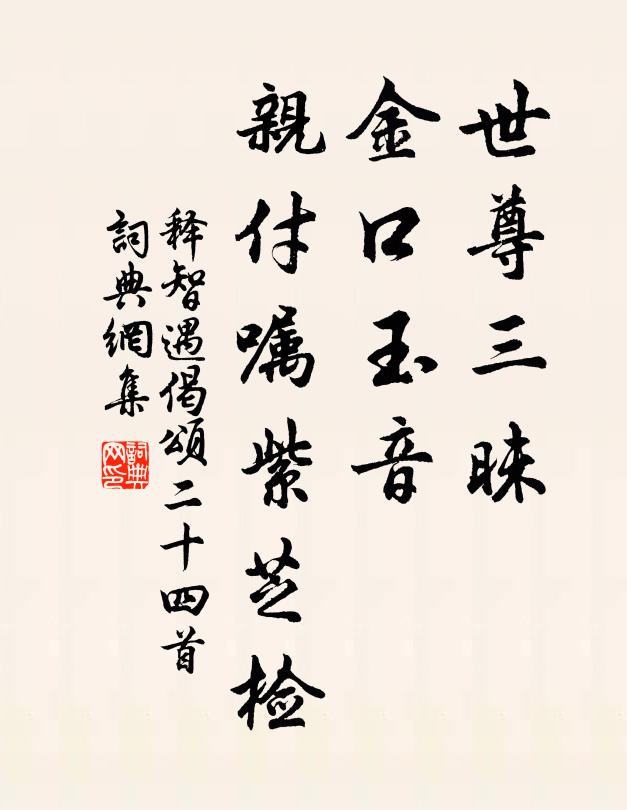 世尊三昧
金口玉音
親付嘱紫芝检
释智遇偈頌二十四首
詞典網集
詞典
网印